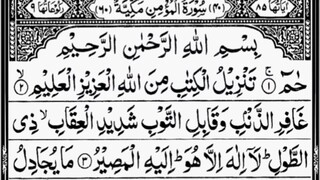 اٰیاتها ٨٥ (٤٠) سُوْرَةُ الْمُؤْمِنِ مَكِّيَّةٌ (٦٠) رکوعاتها ٩
بِسْمِ اللّٰهِ الرَّحْمٰنِ الرَّحِيْمِ
حٰمٓ ۝١ تَنْزِيْلُ الْكِتٰبِ مِنَ اللّٰهِ الْعَزِيْزِ الْعَلِيْمِ ۝٢
غَافِرِ الذَّنْۢبِ وَقَابِلِ التَّوْبِ شَدِيْدِ الْعِقَابِ ۙ ذِي
الطَّوْلِ ؕ لَاۤ اِلٰهَ اِلَّا هُوَ ؕ اِلَيْهِ الْمَصِيْرُ ۝٣ مَا يُجَادِلُ